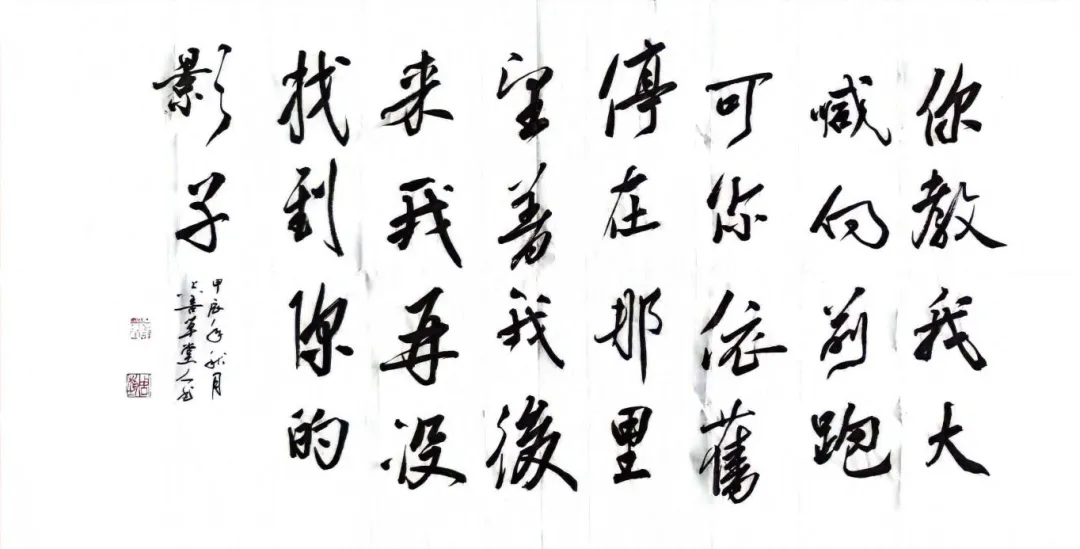 你教我大
喊向前跑
可你依舊
停在那里
望着我後
来我再没
找到你的
影子
甲辰年秋月
上善草堂